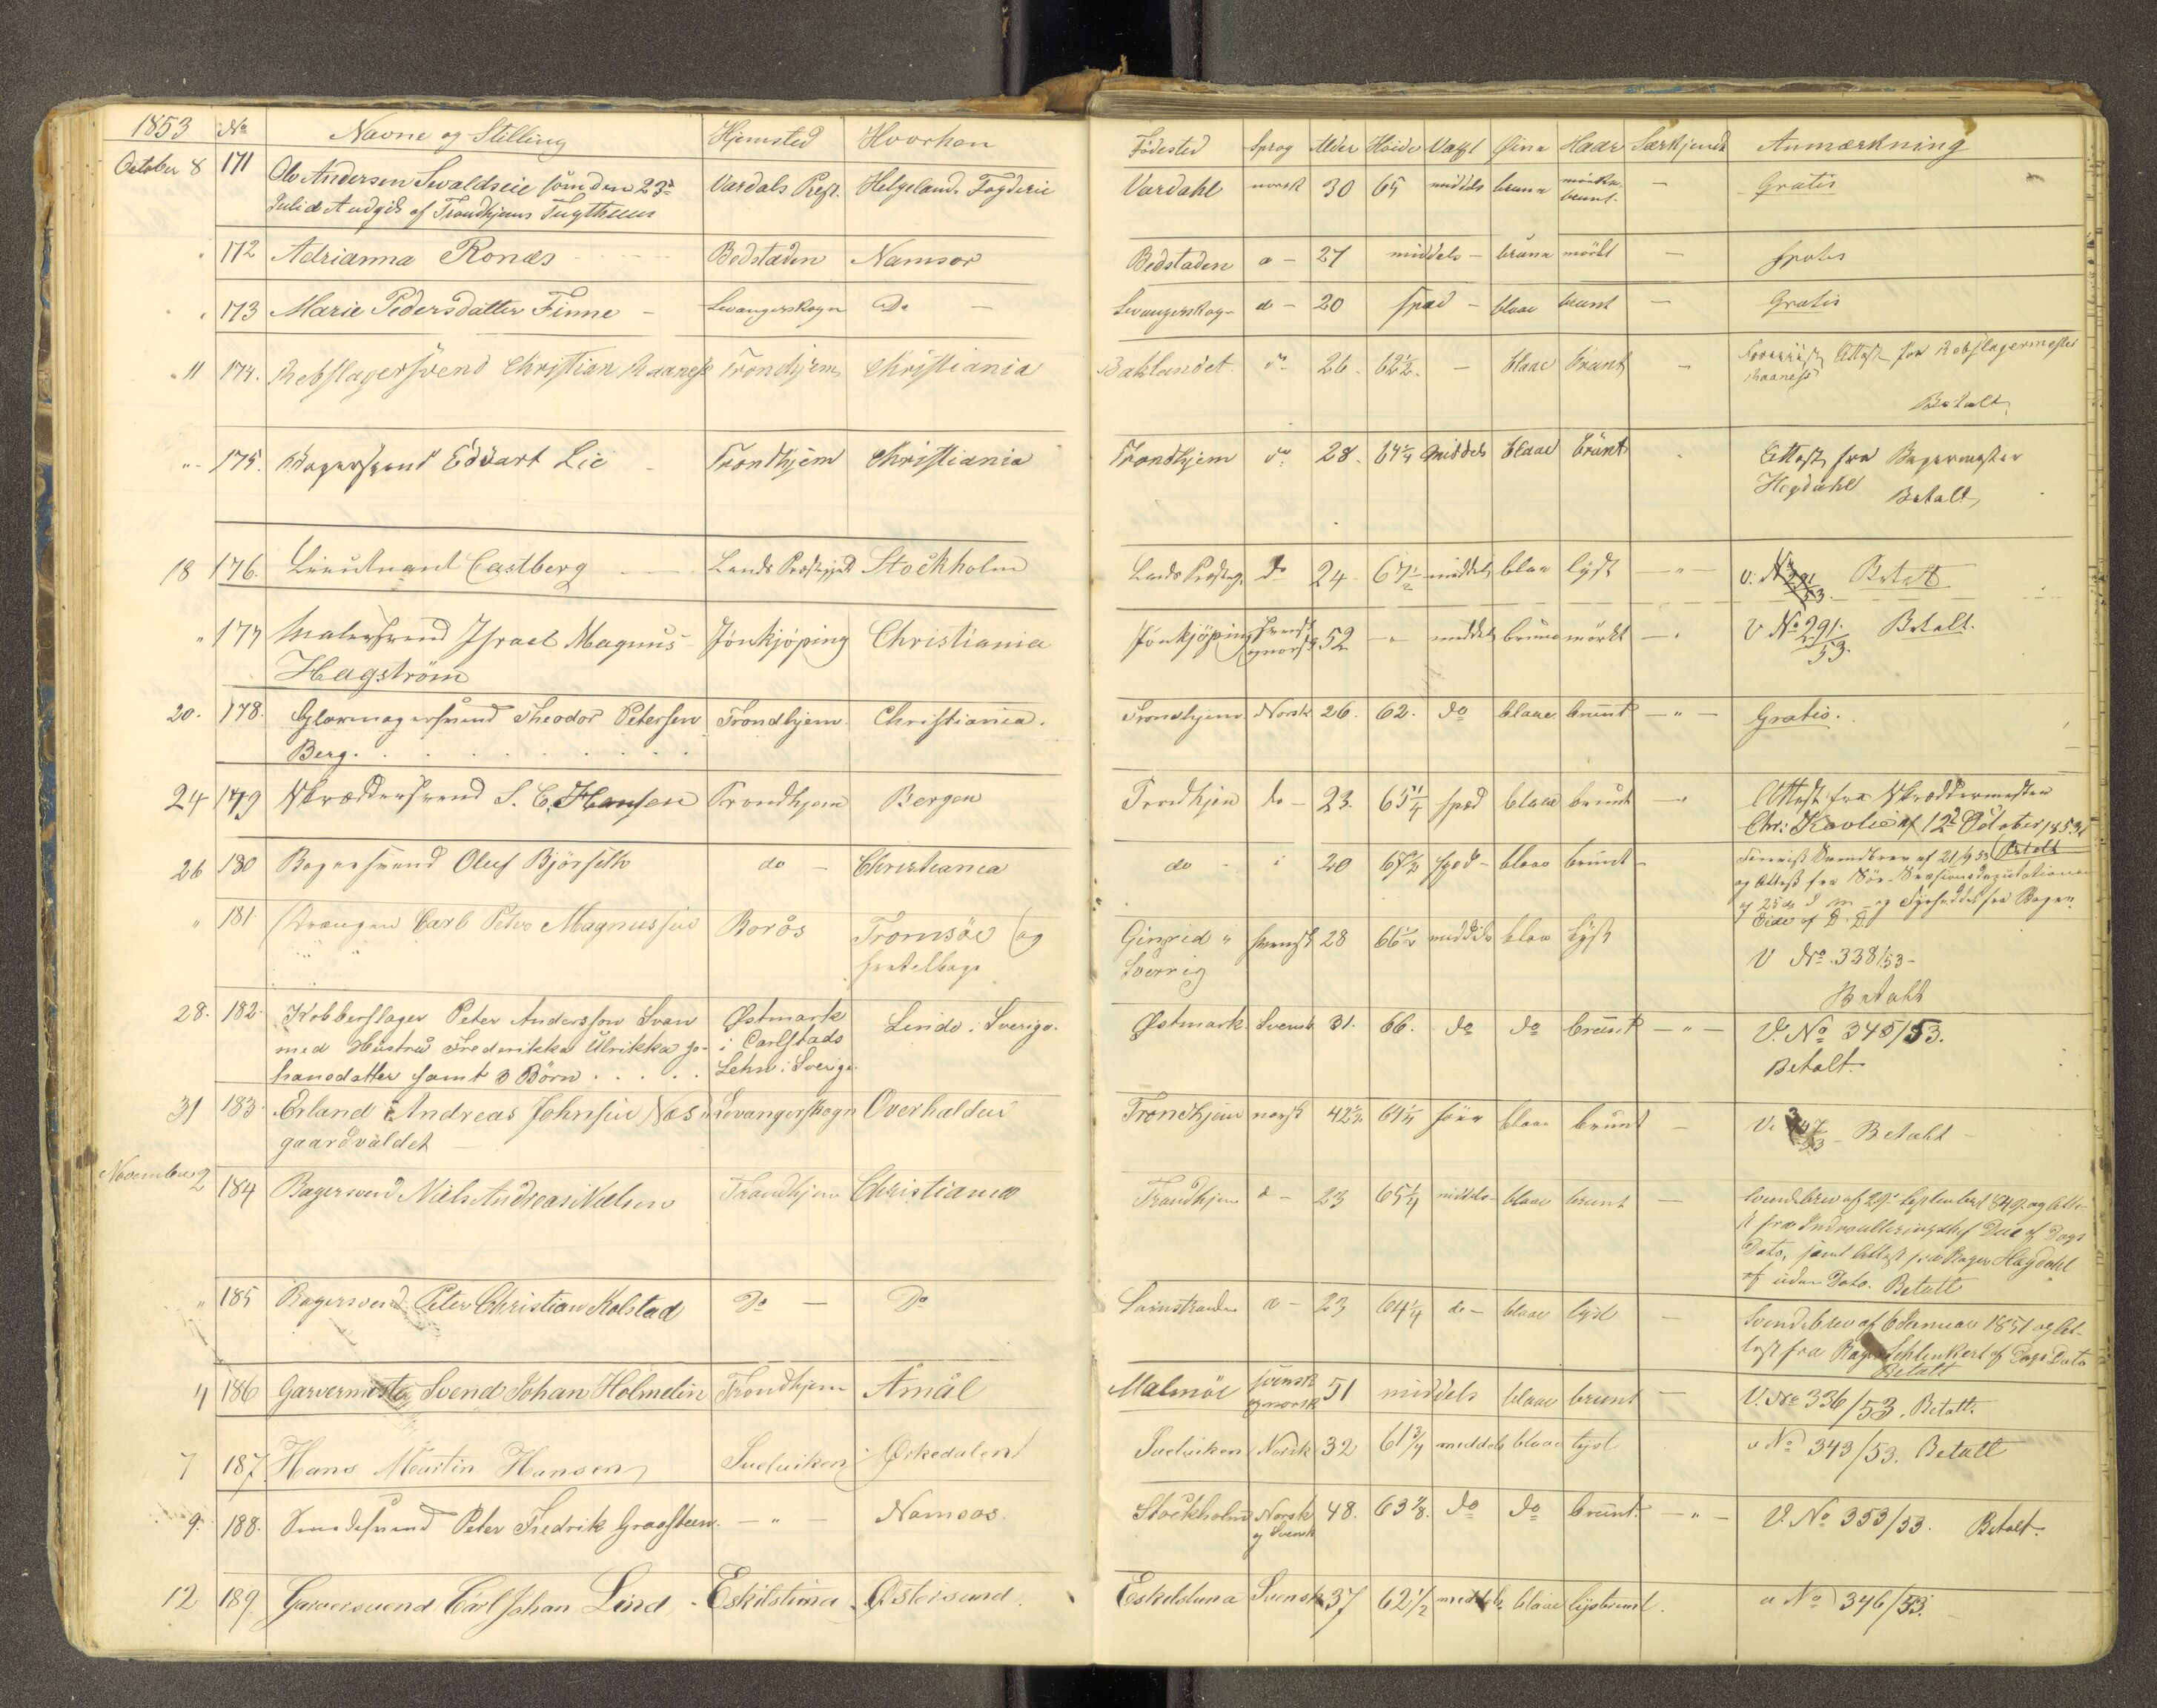 1853 No Navne og Stilling Hjemsted Hvorhen Fødested Sprog Alder Høide Væxt Øine Haar Særkjende Anmærkning
October 8 171 Ole Andersen Svaldseie som den 23d Vardals Prgj. Helgelands Fogderie Vardahl norsk 30 65 middels brune mørke- brunt — Gratis
Juli d A udgik af Trondhjems Tugthuus
172 Adrianna Ronæs Bedstaden Namsos Bedstaden d — 27 middels — brune mörkt — Gratis
173 Marie Pedersdatter Finne — Levangerskogn Do — Levangerskogn d — 20 spæd — blaae brunt — Gratis
11 174. Rebslagersvend Christian Raaness Trondhjem Christiania Baklandet do 26. 62½. — blaae brunt — Attest fra Rebslagermester
Raaness
Betalt
175. Bagersvend Edvart Lie Trondhjem Christiania Trondhjem do 28. 64¼ middels blaae brunt Attest fra Bagermester
Hogdahl Betalt
18 176. Lieutnant Castberg Lands Præstegjeld Stockholm Lands Præsteg. do 24 67½ middels blaa lyst — " — V. No 291/53. Betalt
" 177 Malersvend Israel Magnus Jönkjöping Christiania Jönkjöping svensk og norsk 52 — " middels brune mörkt — " V No 291/53. Betalt.
Hagström
20. 178. Glarmagersvend Theodor Petersen Trondhjem. Christiania. Trondhjem Norsk 26. 62. do blaae brunt — " — Gratis.
Berg.
24 179 Skræddersvend S. C. Hansen Trondhjem Bergen Trondhjem do — 23. 65¼ spæd blaae brunt — " Attest fra Skræddermester
Chr: Kavlie af 12te October 1853
26 180 Bagersvend Oluf Björseth do — Christiania do 20 67½ spæd — blaae brunt — Svendebrev af 21/9 53 Betalt
og Attest fra
af 25de d m og fra Bager
Eide af D. D.
" 181 Drængen Carl Peter Magnussen Borås Tromsöe (og Gingrid " svensk 28 66½ middels blaa lyst V No. 338/53 —
Sverrig
Betalt
28. 182. Kobberslager Peter Andersson Svan Østmark Linde i Sverige. Østmark Svensk 31. 66. do do brunt — " — V. No 345/53.
med Hustru Frederikka Ulrikka Jo- i Carlstads
hansdatter samt 3 Børn Lehn i Sverige. Betalt.
31 183. Erland Andreas Johnsen Næs i Levangerskogn Overhalden Trondhjem norsk 42½ 64¼ blaae brunt — V. 347/53 — Betalt —
gaardvaldet —
November 2 184 Bagersvend Niels Andreas Nielsen Trondhjem Christiania Trondhjem d — 23 65¼ middels blaae brunt — Svendebrev af 29de September 1849 og Atte-
st fra Indroulleringschef Due af Dags
Dato, samt Attest fra Bager Hagdahl
af uden Dato. Betalt
" 185 Bagersvend Peter Christian Kolstad Do — Do d — 23 64¼ do — blaae lyst — Svendebrev af 6 Januar 1851 og At-
test fra Bager Schlenkert af Dags Dato
Betalt
4 186 Garvermester Svend Johan Holmelin Trondhjem Åmål Malmöe svensk og norsk 51 middels blaae brunt — V. No 336/53. Betalt.
7 187 Hans Martin Hansen Sueluiken Orkedalen Sueluiken Norsk 32 61¾ middels blaae lyst v No 343/53. Betalt
9. 188. Smedesvend Peter Fredrik Graasteen. — " — Namsos. Stockholm Norsk og Svensk 48. 63⅞. do do brunt. — " — V. No 353/53. Betalt.
12 189. Garversvend Carl Johan Lind Eskilstuna Østersund. Eskilstuna Svensk 37 62½ middels. blaae lysbrunt. v No 346/53.